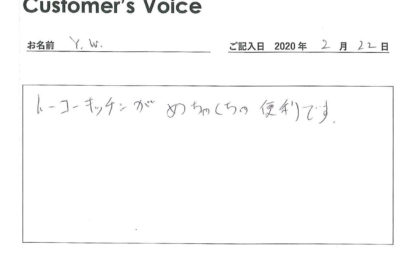 Customer's Voice
お名前 Y.W. ご記入日 2020年 2月 22日
トーコーキッチンが めちゃくちゃ 便利です.